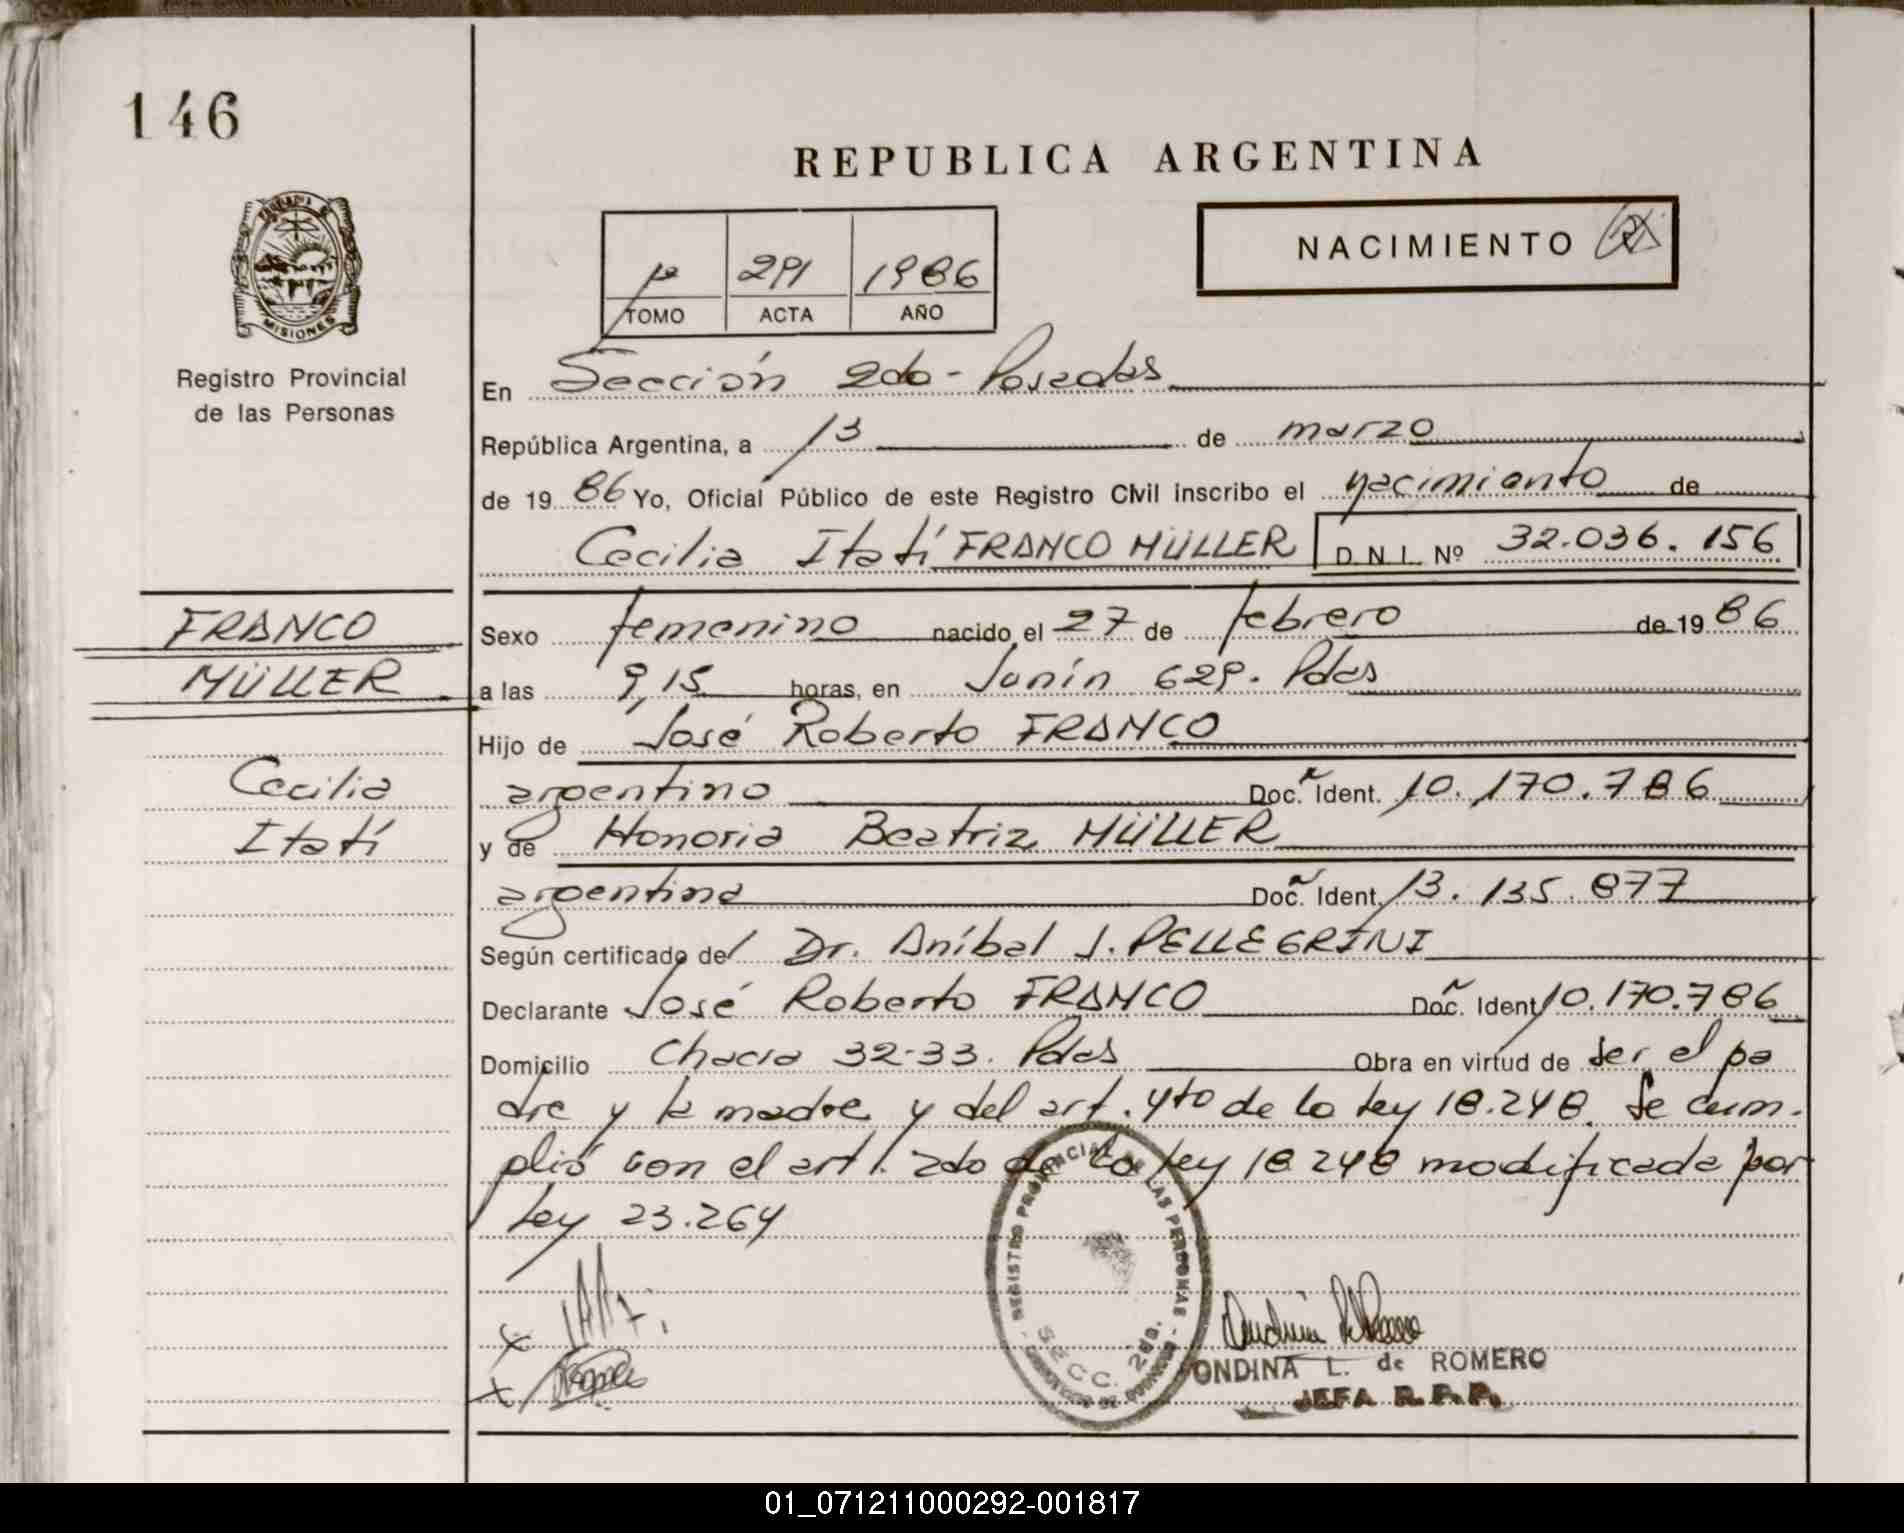 146
REPUBLICA ARGENTINA
MISIONES
Registro Provincial
de las Personas
1º 291 1986
TOMO ACTA AÑO
NACIMIENTO
En Sección 2da - Posadas
República Argentina, a 13 de marzo
de 1986 Yo, Oficial Público de este Registro Civil inscribo el nacimiento de
Cecilia Itatí FRANCO MÜLLER D.N.I. Nº 32.036.156
FRANCO
MÜLLER
Cecilia
Itatí
Sexo femenino nacido el 27 de febrero de 1986
a las 9,15 horas, en Junín 629. Pdas
Hijo de José Roberto FRANCO
argentino Doc. Ident. 10.170.786
y de Honoria Beatriz MÜLLER
argentina Doc. Ident. 13.135.877
Según certificado del Dr. Aníbal J. PELLEGRINI
Declarante José Roberto FRANCO Doc. Ident. 10.170.786
Domicilio Chacra 32-33. Pdas Obra en virtud de ser el pa
dre y la madre y del art. 4to de la ley 18.248. Se cum-
plió con el art. 2do de la ley 18248 modificada por
ley 23.264
REGISTRO PROVINCIAL DE LAS PERSONAS
SECC. 2da.
ONDINA L. de ROMERO
JEFA R.P.P.
01_071211000292-001817